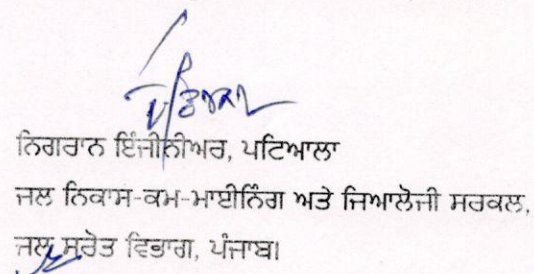 ਨਿਗਰਾਨ ਇੰਜੀਨੀਅਰ, ਪਟਿਆਲਾ
ਜਲ ਨਿਕਾਸ-ਕਮ-ਮਾਈਨਿੰਗ ਅਤੇ ਜਿਆਲੋਜੀ ਸਰਕਲ,
ਜਲ ਸਰੋਤ ਵਿਭਾਗ, ਪੰਜਾਬ।